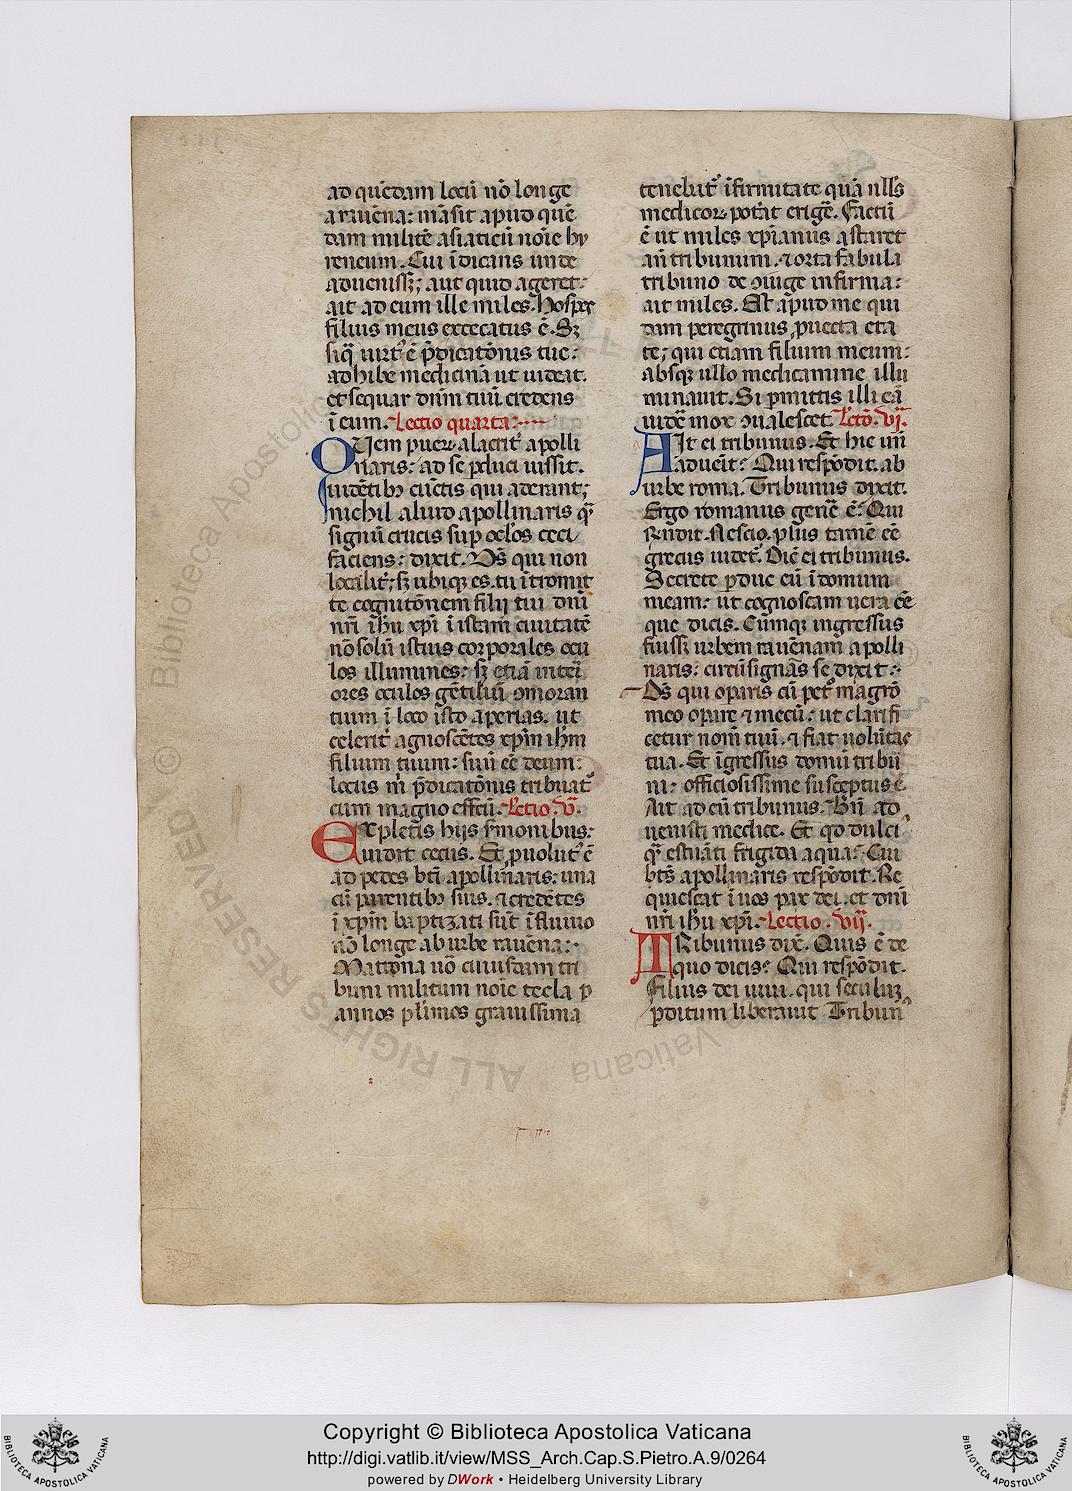 ad quēdam locū nō longe
a rauēna: māsit apud quē
dam militē asiaticū noīe hy
reneum. Cui īdicans unde
aduenissꝫ; aut quid ageret:
ait ad eum ille miles. Hospes
filius meus excecatus ē. Sꝫ
siqͣ uirtꝰ ē p̄dicatōnis tue:
adhibe medicinā ut uideat.
et sequar dnm̄ tuū credens
ī eum. Lectio quarta:
Quem pueꝝ alacritͬ apolli
naris: ad se ꝑduci iussit.
uidētibꝫ cūctis qui aderant;
nichil aliud apollinaris qͣꝫ
signū crucis suꝑ oclos ceci
faciens: dixit. Ds̄ qui non
localitͬ; sꝫ ubiqꝫ es. tu ītromit
te cognitōnem filij tui dn̄i
nr̄i ih̄u xp̄i ī istam ciuitatē
nō solū istius corporales ocu
los illumines: sꝫ etiā interi
ores oculos gētiliū ꝯmoran
tium ī loco isto aperias. ut
celeritͬ agnoscētes xp̄m ih̄m
filium tuum: suū eē deum:
locus m̄ p̄dicatōnis tribuatͬ
cum magno effcū. Lectio .v̄.
Expletis hijs ẜmonibus:
uidit cecus. Et ꝓuolutꝰ ē
ad pedes btī apollinaris: una
cū parentibꝫ suis. ⁊ credētes
ī xp̄m baptizati sūt ī fluuio
nō longe ab urbe rauēna:
Matrona uō cuiusdam tri
buni militum noīe tecla ꝑ
annos plimos grauissima
tenebatͬ īfirmitate quā nll̄s
medicoꝝ potͬat erigͬe. Factū
ē ut miles xp̄ianus astaret
an̄ tribunum. ⁊ orta fabula
tribuno de ꝯiuge infirma:
ait miles. Est apud me qui
dam peregrinus ꝓuecta eta
te; qui etiam filium meum:
absqꝫ ullo medicamine illu
minauit. Si ꝑmittis illi eā
uidͬe mox ꝯualescet. Lctō. vj̄.
Ait ei tribunus. Et hic un̄
aduēit: Qui respōdit. ab
urbe roma. Tribunus dixit.
Ergo romanus genͬe ē: Qui
rn̄dit. Nescio. plus tamē eē
grecus uidetͬ. Dic̄ ei tribunus.
Secrete ꝑduc eū ī domum
meam: ut cognoscam uera eē
que dicis. Cūmqꝫ ingressus
fuissꝫ urbem rauēnam apolli
naris: circūsignās se dixit:
Ds̄ qui oꝑaris cū petͦ magrō
meo oꝑare ⁊ mecū: ut clarifi
cetur nom̄ tuū. ⁊ fiat volūtas
tua. Et īgressus domū tribū
ni: officiosissime susceptus ē.
Ait ad eū tribunus. Bn̄ ad
uenisti medice. Et qͦd dulci
qͣ estuāti frigida aqua: Cui
bts̄ apollinaris respōdit. Re
quiescat ī uos pax dei. et dn̄i
nr̄i ih̄u xp̄i. Lectio .vij̄.
Tribunus dix̄. Quis ē de
quo dicis: Qui respōdit.
filius dei uiui. qui seculuꝫ
ꝑditum liberauit Tribunꝰ
Copyright © Biblioteca Apostolica Vaticana
http://digi.vatlib.it/view/MSS_Arch.Cap.S.Pietro.A.9/0264
powered by DWork • Heidelberg University Library
BIBLIOTECA APOSTOLICA VATICANA
BIBLIOTECA APOSTOLICA VATICANA
© Biblioteca Apostolica Vaticana © ALL RIGHTS RESERVED